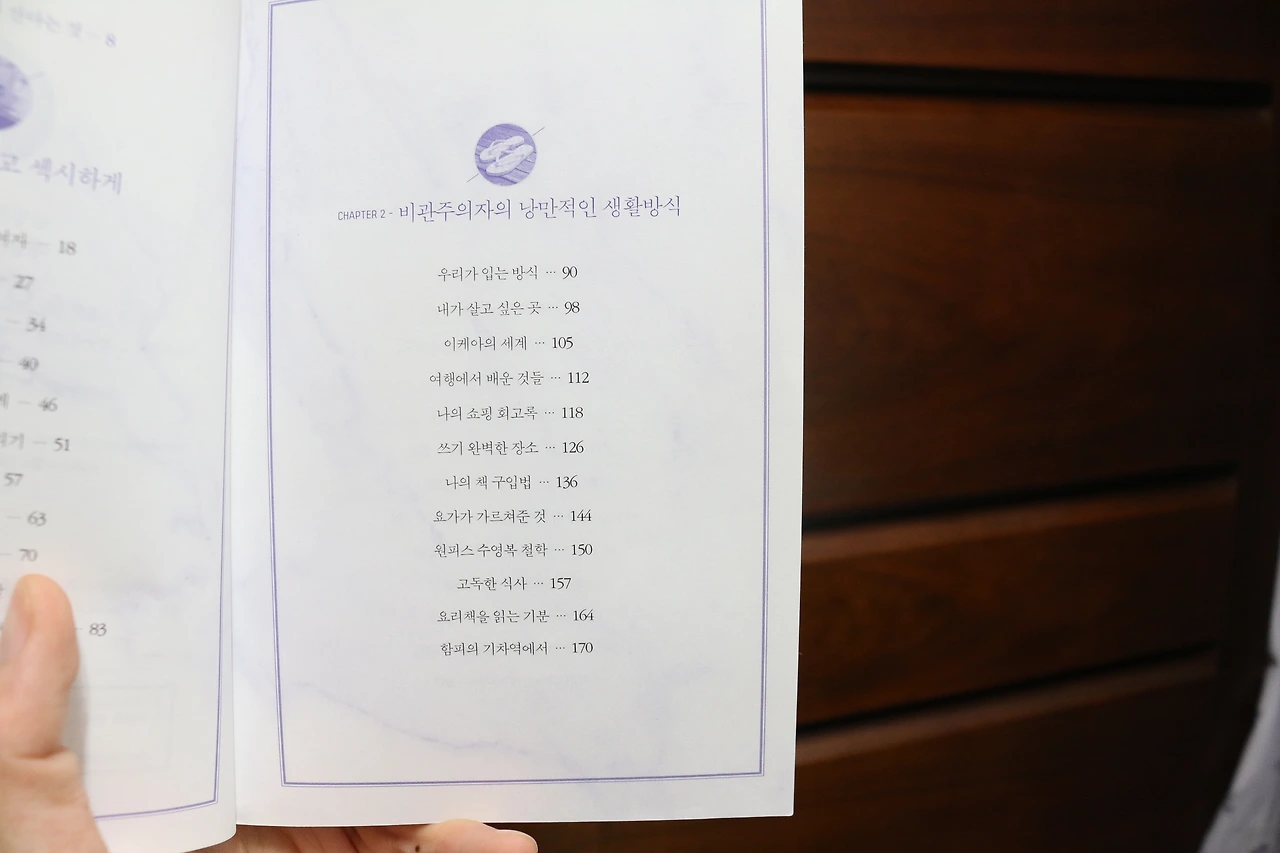 8
고 섹시하게
18
27
34
40
46
51
57
63
70
83
CHAPTER 2 - 비관주의자의 낭만적인 생활방식
우리가 입는 방식 ··· 90
내가 살고 싶은 곳 ··· 98
이케아의 세계 ··· 105
여행에서 배운 것들 ··· 112
나의 쇼핑 회고록 ··· 118
쓰기 완벽한 장소 ··· 126
나의 책 구입법 ··· 136
요가가 가르쳐준 것 ··· 144
원피스 수영복 철학 ··· 150
고독한 식사 ··· 157
요리책을 읽는 기분 ··· 164
함피의 기차역에서 ··· 170